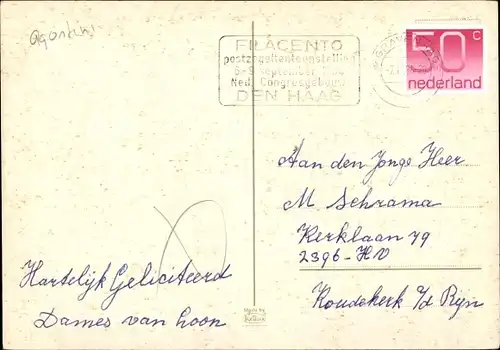 Agostini
FILACENTO
postzegeltentoonstelling
5-9 september
Ned. Congresgebouw
DEN HAAG
50 c
nederland
Aan den Jonge Heer
M Schrama
Kerklaan 79
2396-HV
Koudekerk a/d Rijn
Hartelijk Geliciteerd
Dames van Loon
Made by